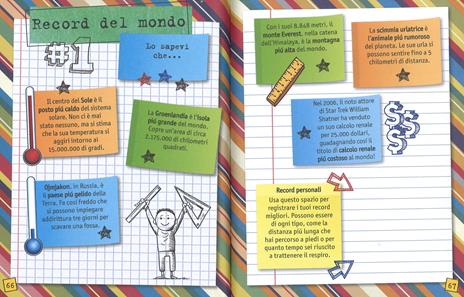 Record del mondo
#1
Lo sapevi
che...
Il centro del Sole è il
posto più caldo del sistema
solare. Non ci è mai
stato nessuno, ma si stima
che la sua temperatura si
aggiri intorno ai
15.000.000 di gradi.
La Groenlandia è l'isola
più grande del mondo.
Copre un'area di circa
2.175.000 di chilometri
quadrati.
Ojmjakon, in Russia, è il
paese più gelido della
Terra. Fa così freddo che
si possono impiegare
addirittura tre giorni per
scavare una fossa.
66
Con i suoi 8.848 metri, il
monte Everest, nella catena
dell'Himalaya, è la montagna
più alta del mondo.
La scimmia urlatrice è
l'animale più rumoroso
del pianeta. Le sue urla si
possono sentire fino a 5
chilometri di distanza.
Nel 2006, il noto attore
di Star Trek William
Shatner ha venduto
un suo calcolo renale
per 25.000 dollari,
guadagnando così il
titolo di calcolo renale
più costoso al mondo!
$$$
Record personali
Usa questo spazio per
registrare i tuoi record
migliori. Possono essere
di ogni tipo, come la
distanza più lunga che
hai percorso a piedi o per
quanto tempo sei riuscito
a trattenere il respiro.
67